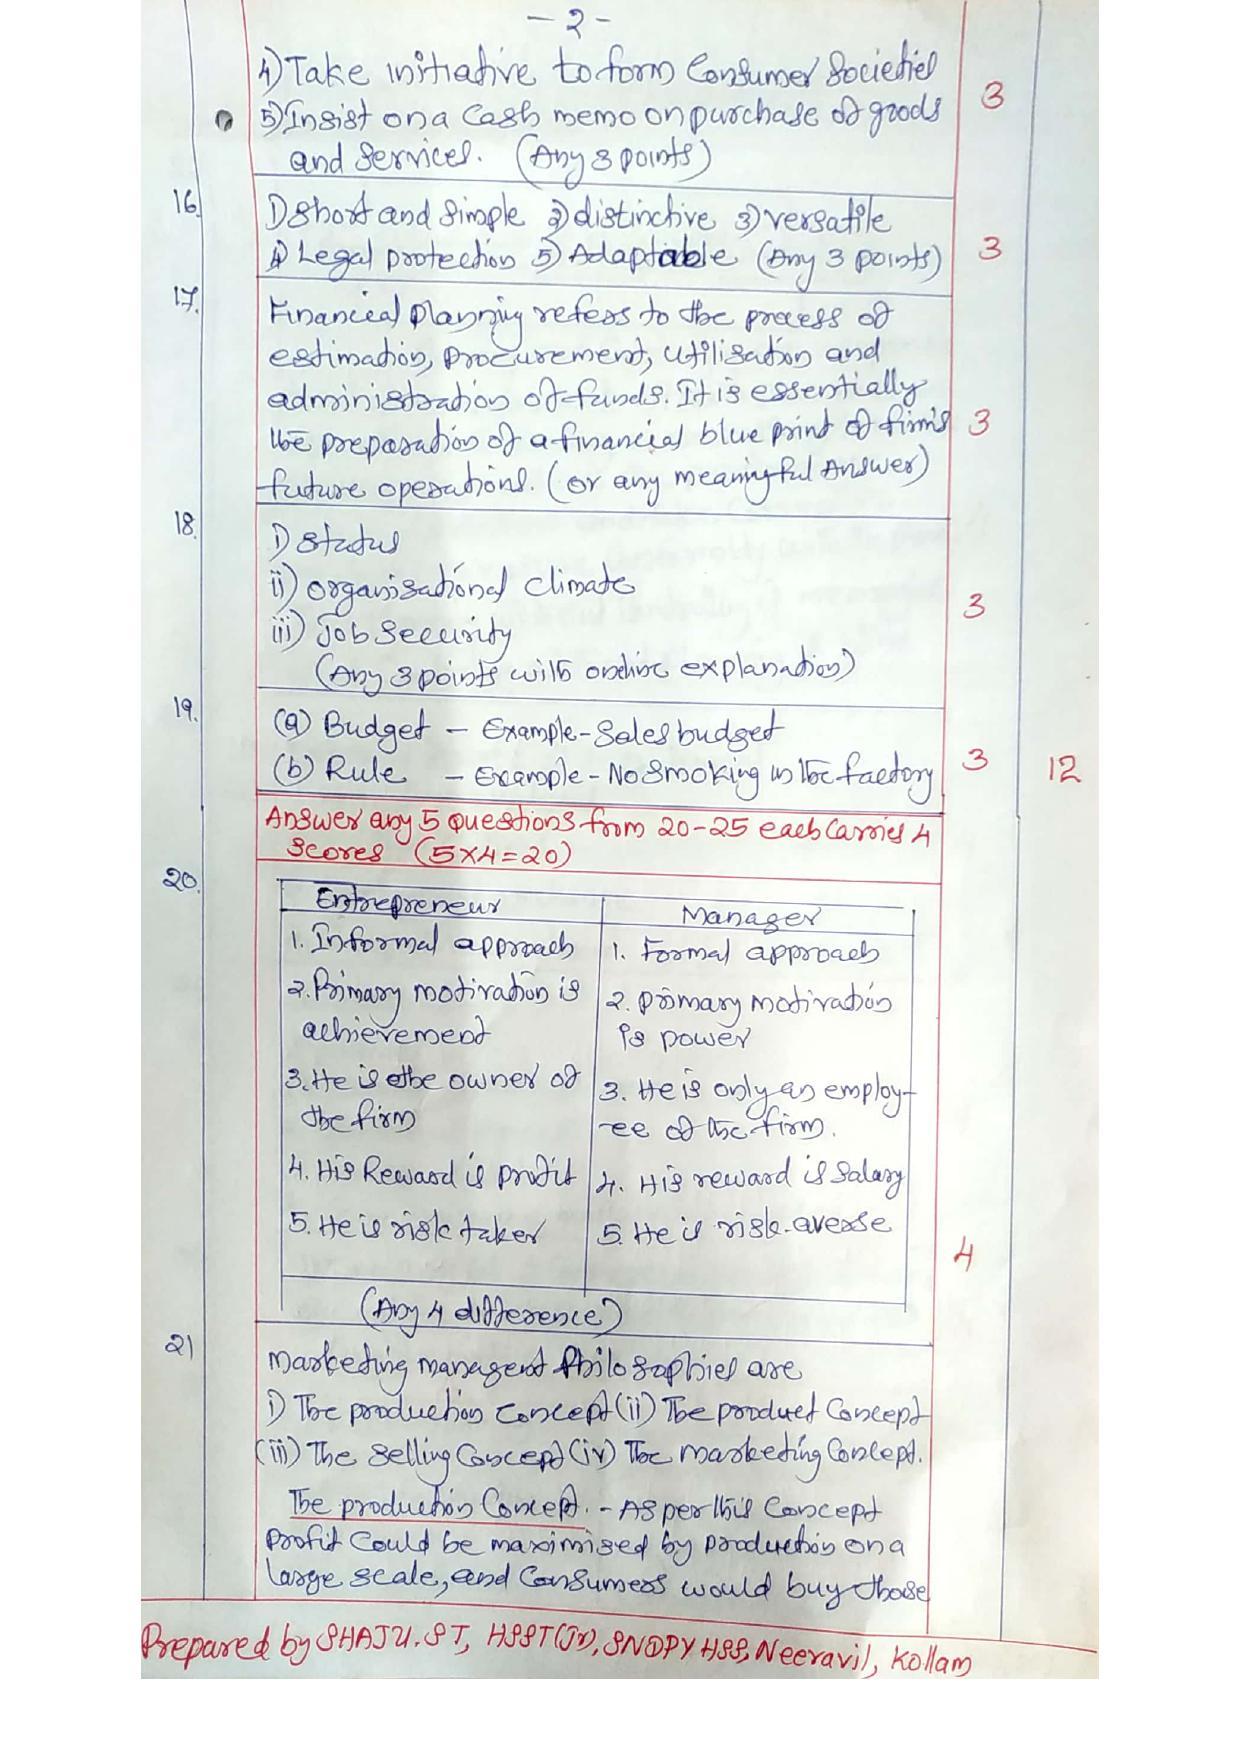 - 2 -
4) Take initiative to form Consumer Societies
5) Insist on a Cash memo on purchase of goods
and Services. (Any 3 points)
3
16.
1) Short and Simple 2) distinctive 3) versatile
4) Legal protection 5) Adaptable (Any 3 points)
3
17.
Financial Planning refers to the process of
estimation, procurement, utilisation and
administration of funds. It is essentially
the preparation of a financial blue print of firm's
future operations. (or any meaningful Answer)
3
18.
i) Status
ii) organisational climate
iii) Job Security
(Any 3 points with oneline explanation)
3
19.
(a) Budget - Example - Sales budget
(b) Rule - Example - No Smoking in the factory
3
12
Answer any 5 questions from 20-25 each Carries 4
Scores (5x4=20)
20.
Entrepreneur
Manager
1. Informal approach
1. Formal approach
2. Primary motivation is
achievement
2. primary motivation
is power
3. He is the owner of
the firm
3. He is only an employ-
-ee of the firm.
4. His Reward is profit
4. His reward is Salary
5. He is risk taker
5. He is risk-averse
4
(Any 4 difference)
21
marketing managent Philosophies are
i) The production Concept (ii) The product Concept
(iii) The Selling Concept (iv) The marketing Concept.
The production Concept. - As per this Concept
Profit Could be maximised by production on a
large scale, and Consumers would buy those
Prepared by SHAJU. S T, HSST(Jr), SNDPY HSS, Neeravil, Kollam